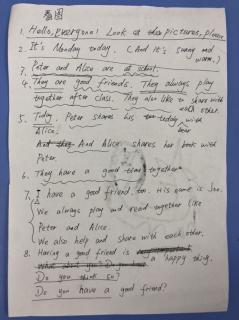 看图
1. Hello, everyone! Look at the pictures, please.
2. It's Monday today. (And it's sunny and
warm.)
3. Peter and Alice are at school.
4. They are good friends. They always play
together after class. They also like to share with
each other.
5. Today, Peter shares his teddy with
bear
Alice.
And Alice shares her book with
Peter.
6. They have a good time together
7. I have a good friend too. His name is Joe.
We always play and read together like
Peter and Alice.
We also help and share with each other.
8. Having a good friend is
What about you? Do you a happy thing.
Do you think so?
Do you have a good friend?